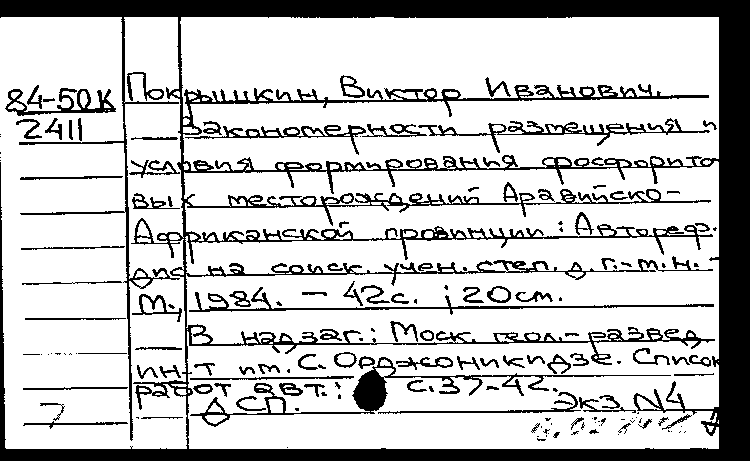 84-50К
2411
Покрышкин, Виктор Иванович.
Закономерности размещения и
условия формирования фосфорито-
вых месторождений Аравийско-
Африканской провинции : Автореф.
дис на соиск. учен. степ. д. г.-м.н. -
М., 1984. - 42с. ; 20см.
В надзаг.: Моск. геол.-развед
ин-т им. С. Орджоникидзе. Список
работ авт.: с.37-42.
ДСП. Экз. N4
7